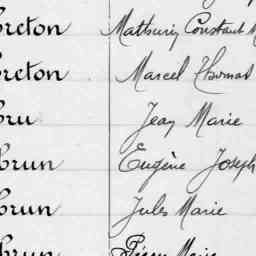 reton Mathurin Constant M
reton Marcel Thomas
ru Jean Marie
brun Eugène Joseph
brun Jules Marie
brun Pierre Marie